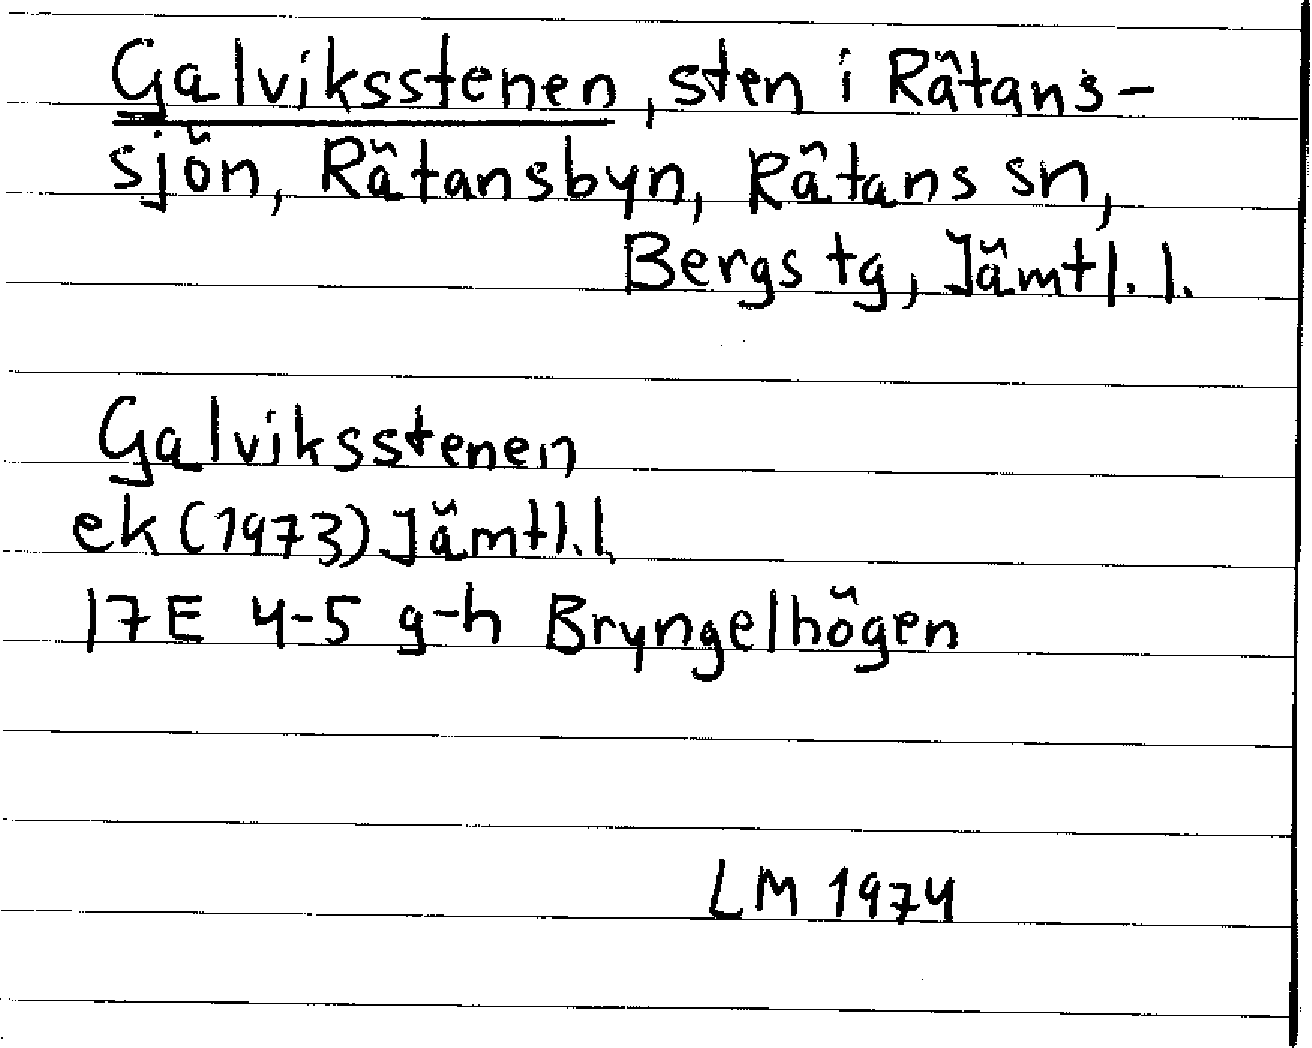 Galviksstenen, sten i Rätans-
sjön, Rätansbyn, Rätans sn,
Bergs tg, Jämtl. l.
Galviksstenen
ek (1973) Jämtl. l.
17E 4-5 g-h Bryngelhögen
LM 1974